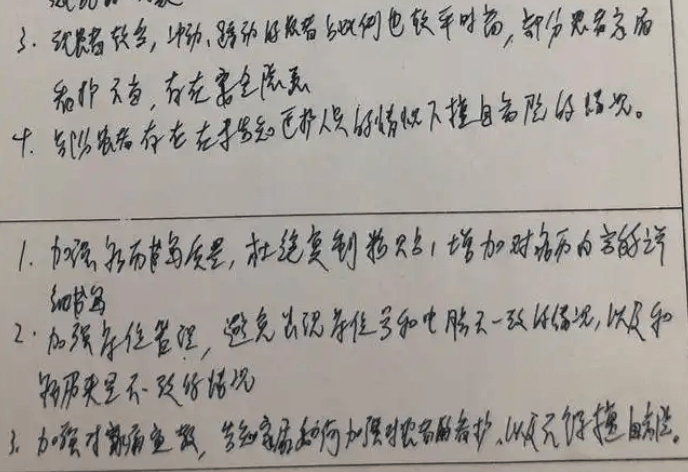 3. 现患者较多，冲动、躁动的患者比例也较平时高，部分患者家属
看护不当，存在安全隐患
4. 部分患者存在在未告知医护人员的情况下擅自离院的情况。
1. 加强病历书写质量，杜绝复制粘贴，增加对病历内容的详
细书写
2. 加强床位管理，避免出现床位号和电脑不一致的情况，以及和
病历夹呈不一致的情况
3. 加强对新病宣教，告知家属如何加强对患者的看护，以及不得擅自离院。